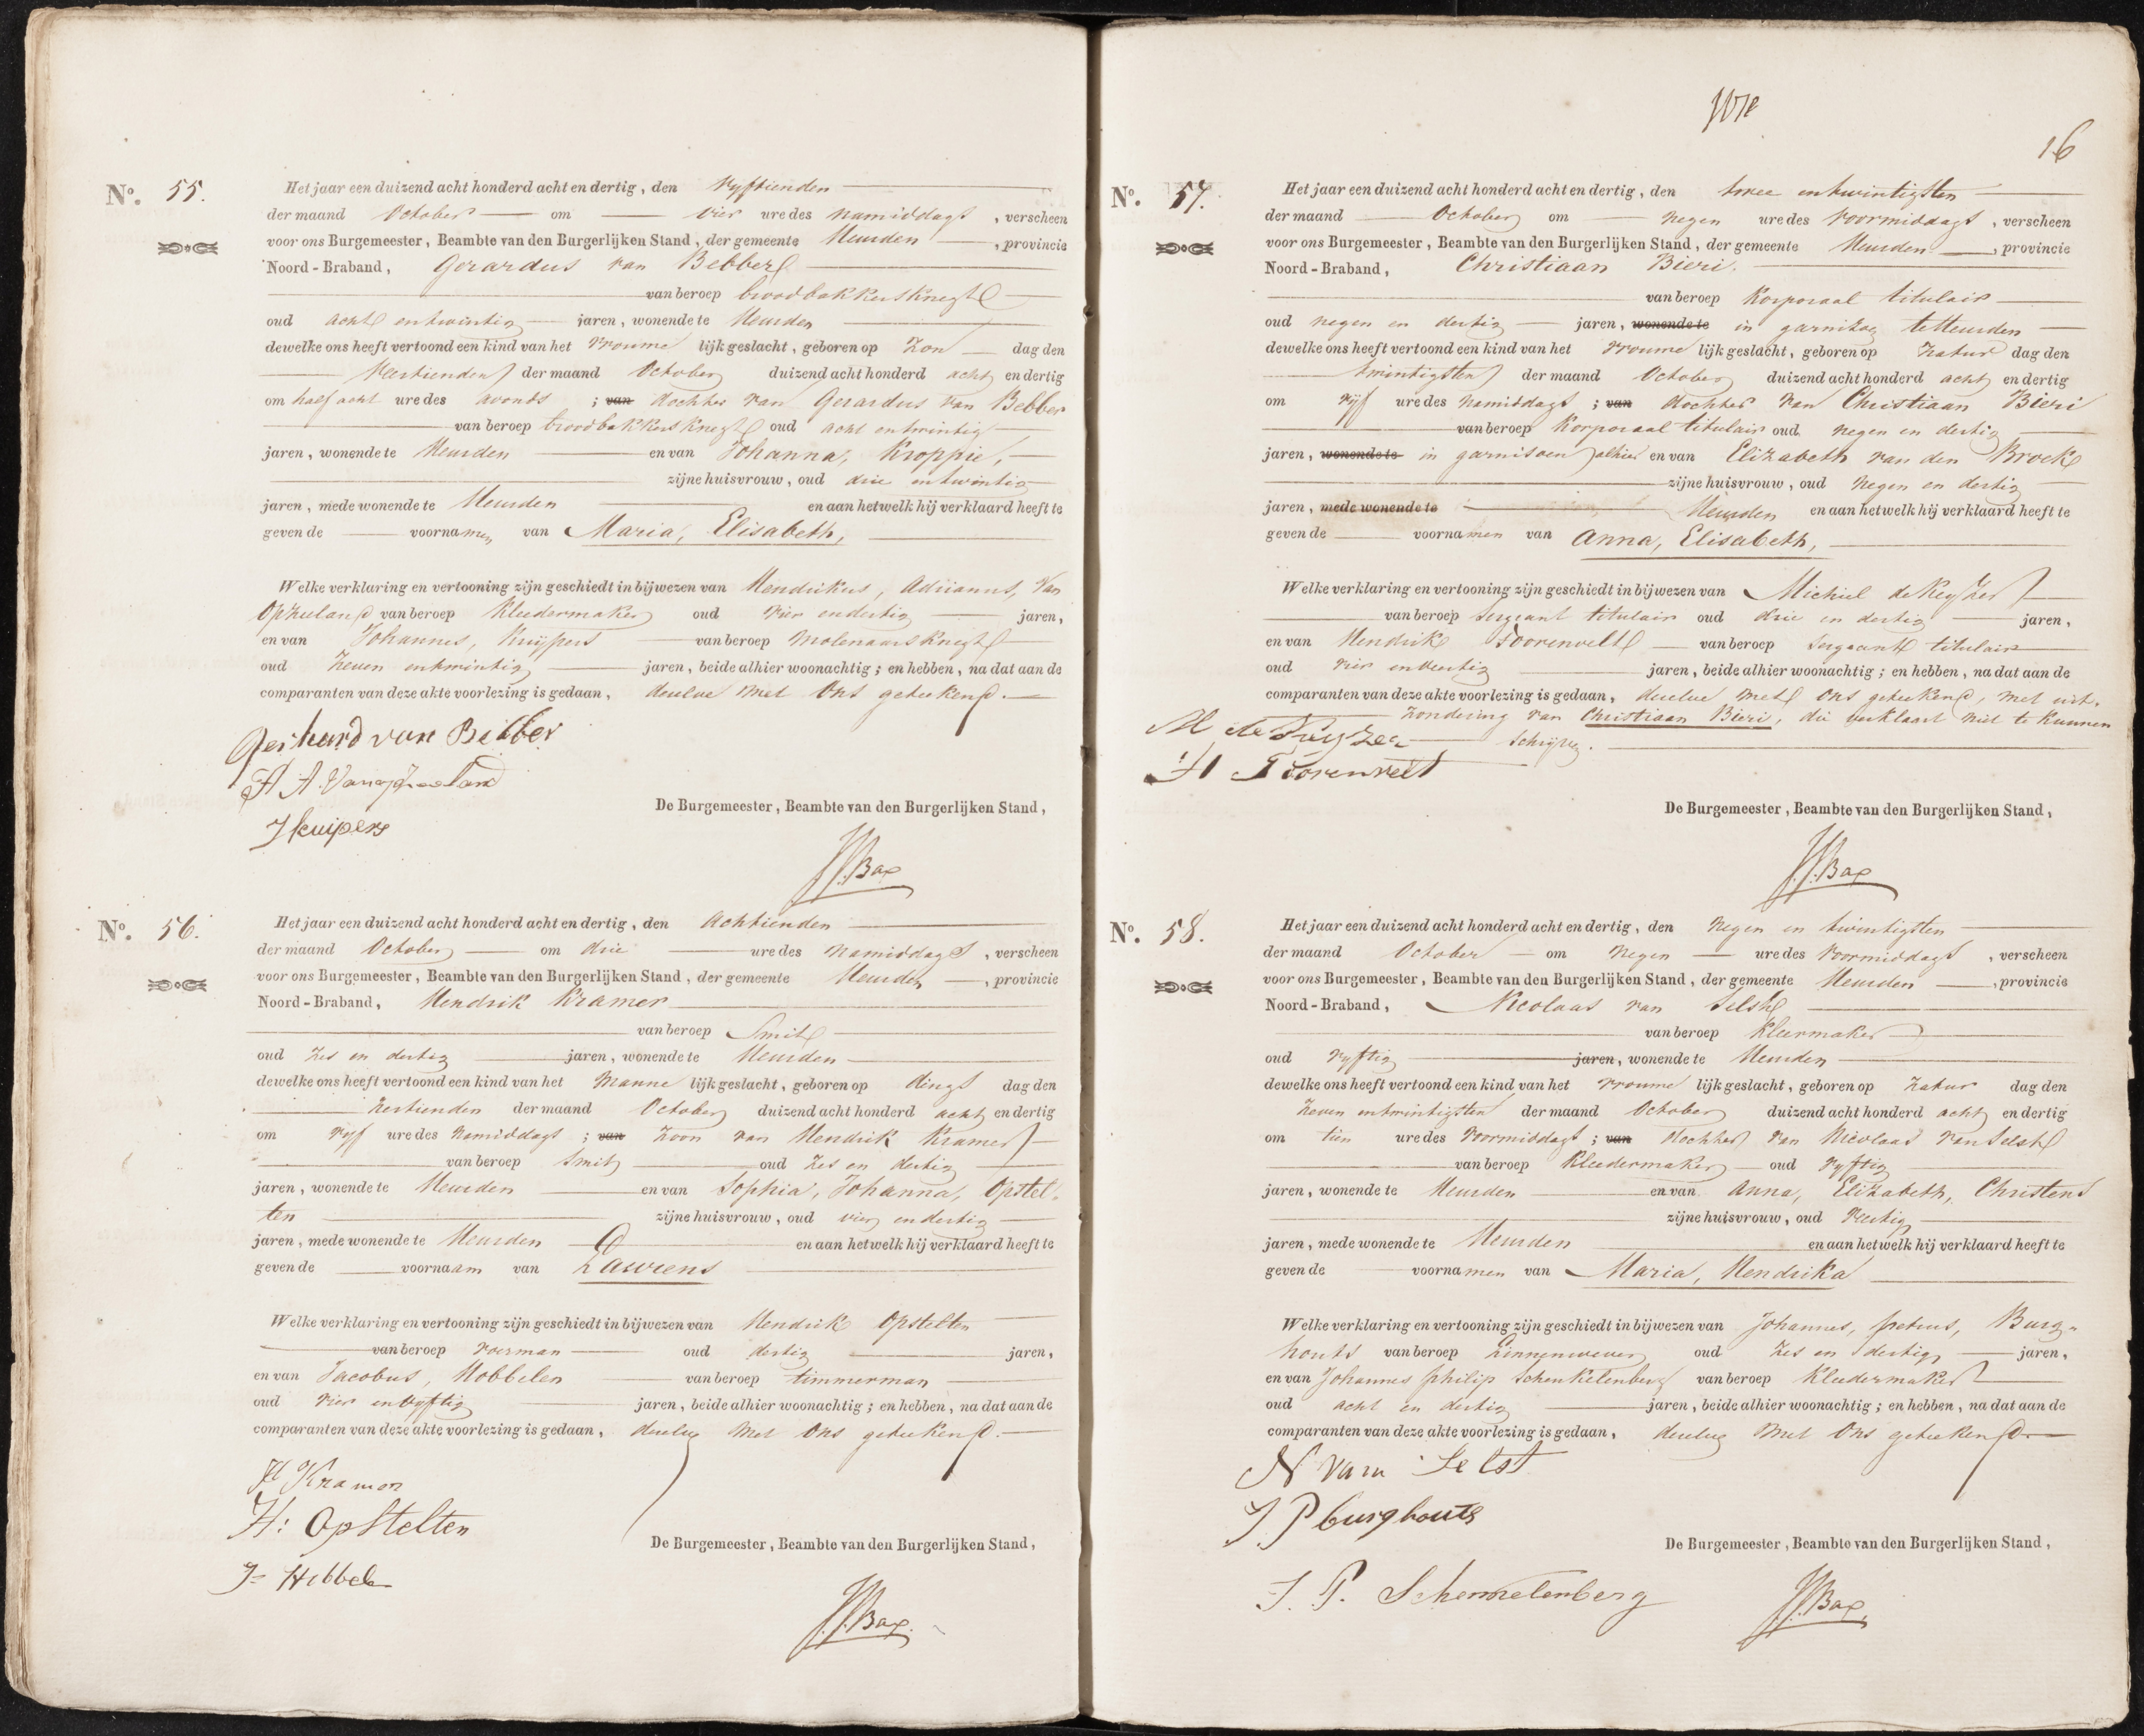 N°. 55.
Het jaar een duizend acht honderd acht en dertig, den vyftienden
der maand October om vier ure des namiddags, verscheen
voor ons Burgemeester, Beambte van den Burgerlijken Stand, der gemeente Heusden, provincie
Noord-Braband, Gerardus van Bebber
van beroep broodbakkersknegt
oud acht entwintig jaren, wonende te Heusden
dewelke ons heeft vertoond een kind van het vrouwe lijk geslacht, geboren op Zon dag den
Veertienden der maand October duizend acht honderd acht en dertig
om half acht ure des avonds ; van dochter van Gerardus van Bebber
van beroep broodbakkersknegt oud acht entwintig
jaren, wonende te Heusden en van Johanna, Kroppie,
zijne huisvrouw, oud drie entwintig
jaren, mede wonende te Heusden en aan hetwelk hij verklaard heeft te
geven de voornamen van Maria, Elisabeth,
Welke verklaring en vertooning zijn geschiedt in bijwezen van Hendrikus, Adrianus, Van
Opzeeland van beroep Kleedermaker oud vier endertig jaren,
en van Johannes, Kuijpers van beroep Molenaarsknegt
oud Zeven entwintig jaren, beide alhier woonachtig; en hebben, na dat aan de
comparanten van deze akte voorlezing is gedaan, deselve met Ons getekend.
Gerhard van Bebber
H A. Van opzeeland
J kuipers
De Burgemeester, Beambte van den Burgerlijken Stand,
J.J. Bax
N°. 56.
Het jaar een duizend acht honderd acht en dertig, den Achtienden
der maand October om drie ure des namiddags, verscheen
voor ons Burgemeester, Beambte van den Burgerlijken Stand, der gemeente Heusden, provincie
Noord-Braband, Hendrik Kramer
van beroep Smit
oud Zes en dertig jaren, wonende te Heusden
dewelke ons heeft vertoond een kind van het Manne lijk geslacht, geboren op dings dag den
Zestienden der maand October duizend acht honderd acht en dertig
om vyf ure des Namiddags ; van Zoon van Hendrik Kramer
van beroep Smit oud Zes en dertig
jaren, wonende te Heusden en van Sophia, Johanna, Opstel-
ten zijne huisvrouw, oud vier en dertig
jaren, mede wonende te Heusden en aan hetwelk hij verklaard heeft te
geven de voornaam van Laurens
Welke verklaring en vertooning zijn geschiedt in bijwezen van Hendrik Opstelten
van beroep voerman oud dertig jaren,
en van Jacobus, Hobbelen van beroep timmerman
oud vier envyftig jaren, beide alhier woonachtig; en hebben, na dat aan de
comparanten van deze akte voorlezing is gedaan, deselve met Ons getekend.
H Kramer
H: Opstelten
J= Hobbele
De Burgemeester, Beambte van den Burgerlijken Stand,
J.J. Bax.
16
N°. 57.
Het jaar een duizend acht honderd acht en dertig, den twee entwintigsten
der maand October om negen ure des Voormiddags, verscheen
voor ons Burgemeester, Beambte van den Burgerlijken Stand, der gemeente Heusden, provincie
Noord-Braband, Christiaan Bieri.
van beroep Korporaal titulair
oud negen en dertig jaren, wonende te in garnisoen te Heusden
dewelke ons heeft vertoond een kind van het vrouwe lijk geslacht, geboren op Zatur dag den
twintigsten der maand October duizend acht honderd acht en dertig
om vyf ure des Namiddags ; van dochter van Christiaan Bieri
van beroep Korporaal titulair oud negen en dertig
jaren, wonende te in garnisoen alhier en van Elizabeth van den Broek
zijne huisvrouw, oud Negen en dertig
jaren, mede wonende te Heusden en aan hetwelk hij verklaard heeft te
geven de voornamen van Anna, Elisabeth,
Welke verklaring en vertooning zijn geschiedt in bijwezen van Michiel de Keyzer
van beroep Sergeant titulair oud drie en dertig jaren,
en van Hendrik Toorenvelt van beroep Sergeant titulair
oud vier enveertig jaren, beide alhier woonachtig; en hebben, na dat aan de
comparanten van deze akte voorlezing is gedaan, deselve met Ons getekend, met uit-
zondering van Christiaan Bieri, die verklaart niet te kunnen
schrijven.
M de Keyzer
H Toorenvelt
De Burgemeester, Beambte van den Burgerlijken Stand,
J.J. Bax
N°. 58.
Het jaar een duizend acht honderd acht en dertig, den Negen en twintigsten
der maand October om Negen ure des Voormiddags, verscheen
voor ons Burgemeester, Beambte van den Burgerlijken Stand, der gemeente Heusden, provincie
Noord-Braband, Nicolaas van Selst
van beroep Kleermaker
oud vyftig jaren, wonende te Heusden
dewelke ons heeft vertoond een kind van het vrouwe lijk geslacht, geboren op Zatur dag den
Zeven entwintigsten der maand October duizend acht honderd acht en dertig
om tien ure des Voormiddags ; van dochter van Nicolaas van Selst
van beroep Kleedermaker oud vyftig
jaren, wonende te Heusden en van Anna, Elizabeth, Christens
zijne huisvrouw, oud Veertig
jaren, mede wonende te Heusden en aan hetwelk hij verklaard heeft te
geven de voornamen van Maria, Hendrika
Welke verklaring en vertooning zijn geschiedt in bijwezen van Johannes, petrus, Burg-
houts van beroep Linnenwever oud Zes en dertig jaren,
en van Johannes philip Schenkelenberg van beroep Kleedermaker
oud acht en dertig jaren, beide alhier woonachtig; en hebben, na dat aan de
comparanten van deze akte voorlezing is gedaan, deselve met Ons getekend.
N van Selst
J P burghouts
J. P. Schenkelenberg
De Burgemeester, Beambte van den Burgerlijken Stand,
J.J. Bax